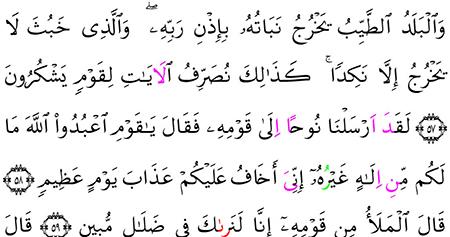 وَٱلْبَلَدُ ٱلطَّيِّبُ يَخْرُجُ نَبَاتُهُۥ بِإِذْنِ رَبِّهِۦۖ وَٱلَّذِى خَبُثَ لَا
يَخْرُجُ إِلَّا نَكِدًاۚ كَذَٰلِكَ نُصَرِّفُ ٱلَايَٰتِ لِقَوْمٍ يَشْكُرُونَ
﴿٥٧﴾ لَقَدَ اَرْسَلْنَا نُوحًا اِلَىٰ قَوْمِهِۦ فَقَالَ يَٰقَوْمِ ٱعْبُدُوا۟ ٱللَّهَ مَا
لَكُم مِّنِ اِلَٰهٍ غَيْرُهُۥٓ إِنِّىَ أَخَافُ عَلَيْكُمْ عَذَابَ يَوْمٍ عَظِيمٍ ﴿٥٨﴾
قَالَ ٱلْمَلَأُ مِن قَوْمِهِۦٓ إِنَّا لَنَرىٰكَ فِى ضَلَٰلٍ مُّبِينٍ ﴿٥٩﴾ قَالَ